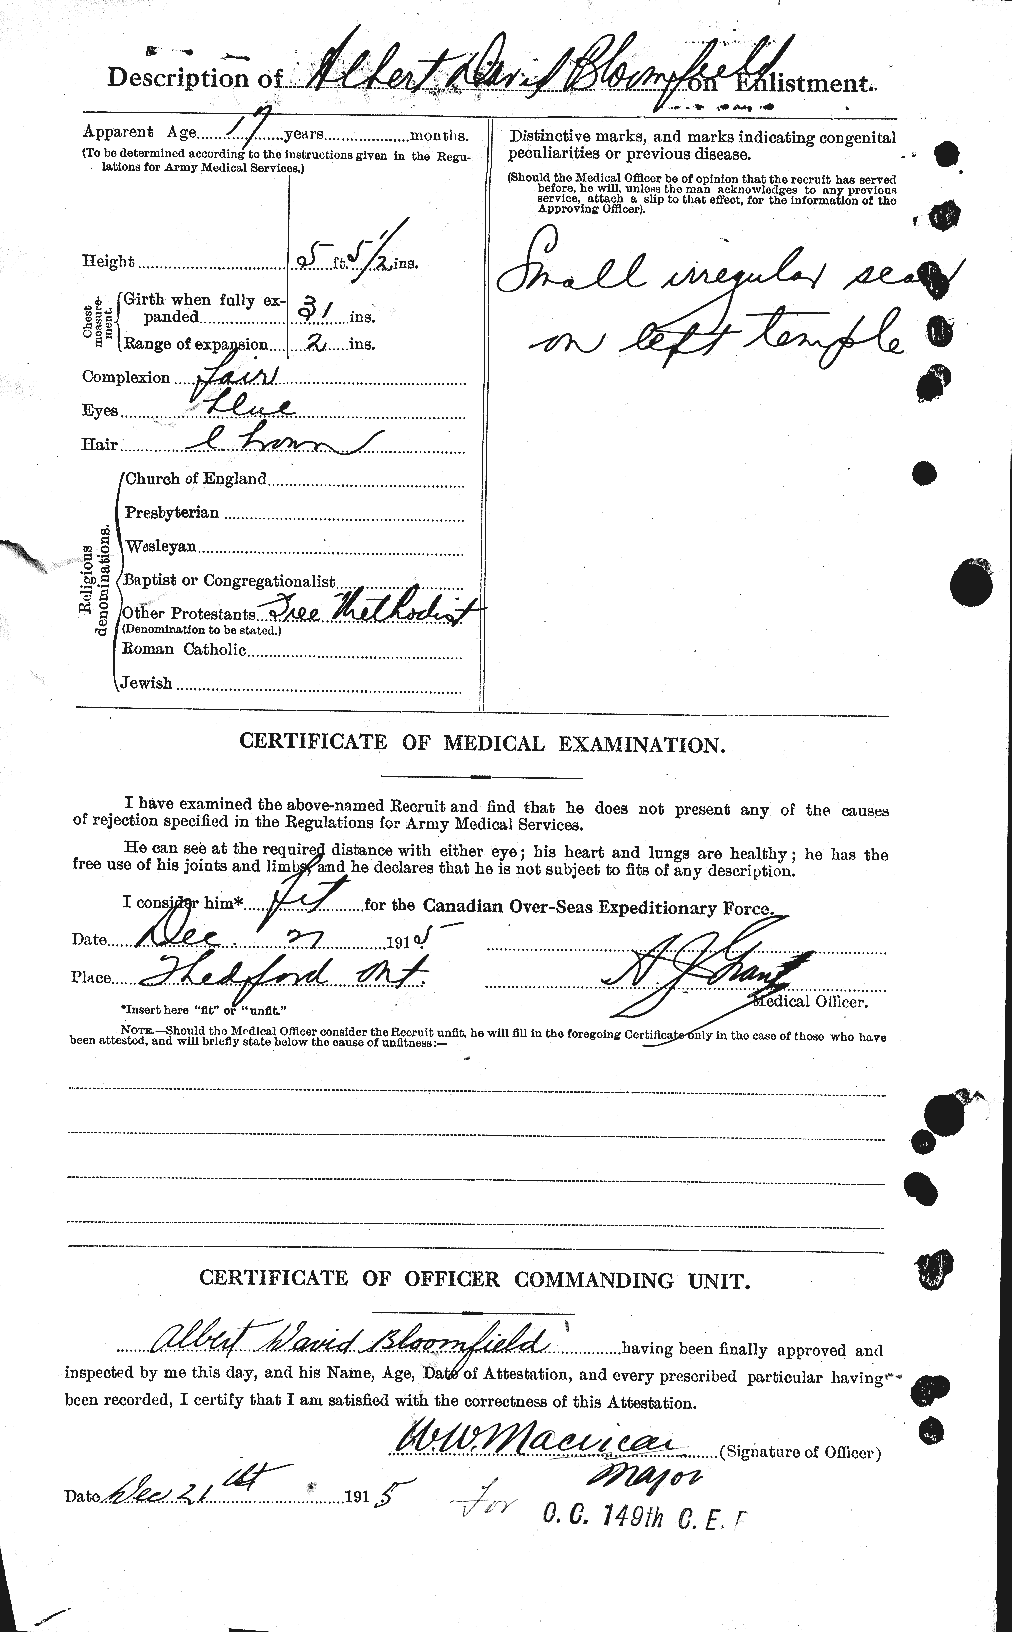 Description of Albert David Bloomfield on Enlistment.
Apparent Age 17 years months.
(To be determined according to the instructions given in the Regu-
lations for Army Medical Services.)
Height 5 ft. 5 1/2 ins.
Chest measure-
ment.
Girth when fully ex-
panded 31 ins.
Range of expansion 2 ins.
Complexion fair
Eyes blue
Hair brown
Religious
denominations.
Church of England
Presbyterian
Wesleyan
Baptist or Congregationalist
Other Protestants Free Methodist
(Denomination to be stated.)
Roman Catholic
Jewish
Distinctive marks, and marks indicating congenital
peculiarities or previous disease.
(Should the Medical Officer be of opinion that the recruit has served
before, he will, unless the man acknowledges to any previous
service, attach a slip to that effect, for the information of the
Approving Officer).
Small irregular scar
on left temple
CERTIFICATE OF MEDICAL EXAMINATION.
I have examined the above-named Recruit and find that he does not present any of the causes
of rejection specified in the Regulations for Army Medical Services.
He can see at the required distance with either eye; his heart and lungs are healthy; he has the
free use of his joints and limbs, and he declares that he is not subject to fits of any description.
I consider him* fit for the Canadian Over-Seas Expeditionary Force.
Date Dec. 21 1915
Place Thedford Ont.
A J Grant
Medical Officer.
*Insert here "fit" or "unfit."
NOTE.—Should the Medical Officer consider the Recruit unfit, he will fill in the foregoing Certificate only in the case of those who have
been attested, and will briefly state below the cause of unfitness:—
CERTIFICATE OF OFFICER COMMANDING UNIT.
Albert David Bloomfield having been finally approved and
inspected by me this day, and his Name, Age, Date of Attestation, and every prescribed particular having
been recorded, I certify that I am satisfied with the correctness of this Attestation.
W.W. Macvicar (Signature of Officer)
Major
Date Dec 21st 1915
For O. C. 149th C. E.